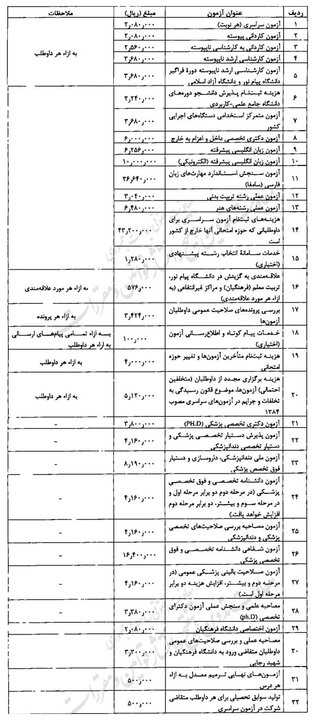 ردیف عنوان آزمون مبلغ (ریال) ملاحظات
۱ آزمون سراسری (هر نوبت) ۲,۰۸۰,۰۰۰
۲ آزمون کاردانی پیوسته ۲,۰۸۰,۰۰۰
۳ آزمون کاردانی به کارشناسی ناپیوسته ۲,۵۶۰,۰۰۰
۴ آزمون کارشناسی ارشد ناپیوسته ۳,۶۸۰,۰۰۰
به ازاء هر داوطلب
۵ آزمون کارشناسی ارشد ناپیوسته دورهٔ فراگیر
دانشگاه پیام نور و دانشگاه آزاد اسلامی ۳,۶۸۰,۰۰۰
۶ هزینه ثبت‌نام پذیرش دانشجو دوره‌های
دانشگاه جامع علمی-کاربردی ۲,۲۴۰,۰۰۰
۷ آزمون متمرکز استخدامی دستگاه‌های اجرایی
کشور ۳,۶۸۰,۰۰۰
۸ آزمون دکتری تخصصی داخل و اعزام به خارج ۶,۰۰۰,۰۰۰
۹ آزمون زبان انگلیسی پیشرفته ۶,۲۵۶,۰۰۰
۱۰ آزمون زبان انگلیسی پیشرفته (الکترونیکی) ۱۰,۰۰۰,۰۰۰
۱۱ آزمون سنجش استاندارد مهارت‌های زبان
فارسی (سامفا) ۲۶,۶۴۰,۰۰۰
۱۲ آزمون عملی رشته تربیت بدنی ۳,۰۴۰,۰۰۰
۱۳ آزمون عملی رشته‌های هنر ۶,۴۸۰,۰۰۰
۱۴ هزینه‌های ثبت‌نام آزمون سراسری برای
داوطلبانی که حوزه امتحانی آنها خارج از کشور
است ۴۳,۲۰۰,۰۰۰
۱۵ خدمات سامانهٔ انتخاب رشته پیشنهادی
(اختیاری) ۱,۲۸۰,۰۰۰
۱۶ علاقه‌مندی به گزینش در دانشگاه پیام نور،
تربیت معلم (فرهنگیان) و مراکز غیرانتفاعی (به
ازاء هر مورد علاقه‌مندی) ۵۷۶,۰۰۰ به ازاء هر مورد علاقه‌مندی
۱۷ بررسی پرونده‌های صلاحیت عمومی داوطلبان
آزمون‌ها ۳,۴۲۴,۰۰۰ به ازاء هر پرونده
۱۸ خدمات پیام کوتاه و اطلاع‌رسانی آزمون
(اختیاری) ۱۰۰,۰۰۰ به ازاء تمامی پیام‌های ارسالی
به ازاء هر داوطلب
۱۹ هزینه ثبت‌نام متأخرین آزمون‌ها و تغییر حوزه
امتحانی ۴,۰۰۰,۰۰۰ به ازاء هر داوطلب
۲۰ هزینه برگزاری مجدد از داوطلبان (متخلفین
احتمالی) آزمون‌ها، موضوع قانون رسیدگی به
تخلفات و جرایم در آزمون‌های سراسری مصوب
۱۳۸۴ ۵,۱۲۰,۰۰۰ به ازاء هر داوطلب
۲۱ آزمون دکتری تخصصی پزشکی (PH.D) ۳,۸۰۰,۰۰۰ -
۲۲ آزمون پذیرش دستیار تخصصی پزشکی و
دستیار تخصصی دندانپزشکی ۴,۱۶۰,۰۰۰ -
۲۳ آزمون ملی دندانپزشکی، داروسازی و دستیار
فوق تخصص پزشکی ۸,۱۹۰,۰۰۰ -
۲۴ آزمون دانشنامه تخصصی و فوق تخصصی
پزشکی (در مرحله دوم دو برابر مرحله اول و
در مرحله سوم و بیشتر، دو برابر مرحله دوم
افزایش خواهد یافت) ۴,۱۶۰,۰۰۰ -
۲۵ آزمون مصاحبه بررسی صلاحیت‌های تخصصی
پزشکی و دندانپزشکی ۴,۱۶۰,۰۰۰ -
۲۶ آزمون شفاهی دانشنامه تخصصی و فوق
تخصصی پزشکی ۱۶,۴۰۰,۰۰۰ -
۲۷ آزمون صلاحیت بالینی پزشکی عمومی (در
مرتبه دوم و بیشتر، افزایش هزینه دو برابر
مرحله اول است) ۴,۱۶۰,۰۰۰ -
۲۸ مصاحبه علمی و سنجش عملی آزمون دکترای
تخصصی (ph.D) ۳,۳۸۰,۰۰۰ -
۲۹ آزمون اختصاصی دانشگاه فرهنگیان ۲,۰۸۰,۰۰۰ -
۳۰ مصاحبه عملی و بررسی صلاحیت‌های عمومی
داوطلبان متقاضی ورود به دانشگاه فرهنگیان و
شهید رجایی ۳,۳۰۰,۰۰۰ -
۳۱ آزمون‌های نهایی ترمیم معدل به ازاء
هر درس ۵۰۰,۰۰۰ -
۳۲ تولید سوابق تحصیلی برای هر داوطلب متقاضی
شرکت در آزمون سراسری ۵۰۰,۰۰۰ -